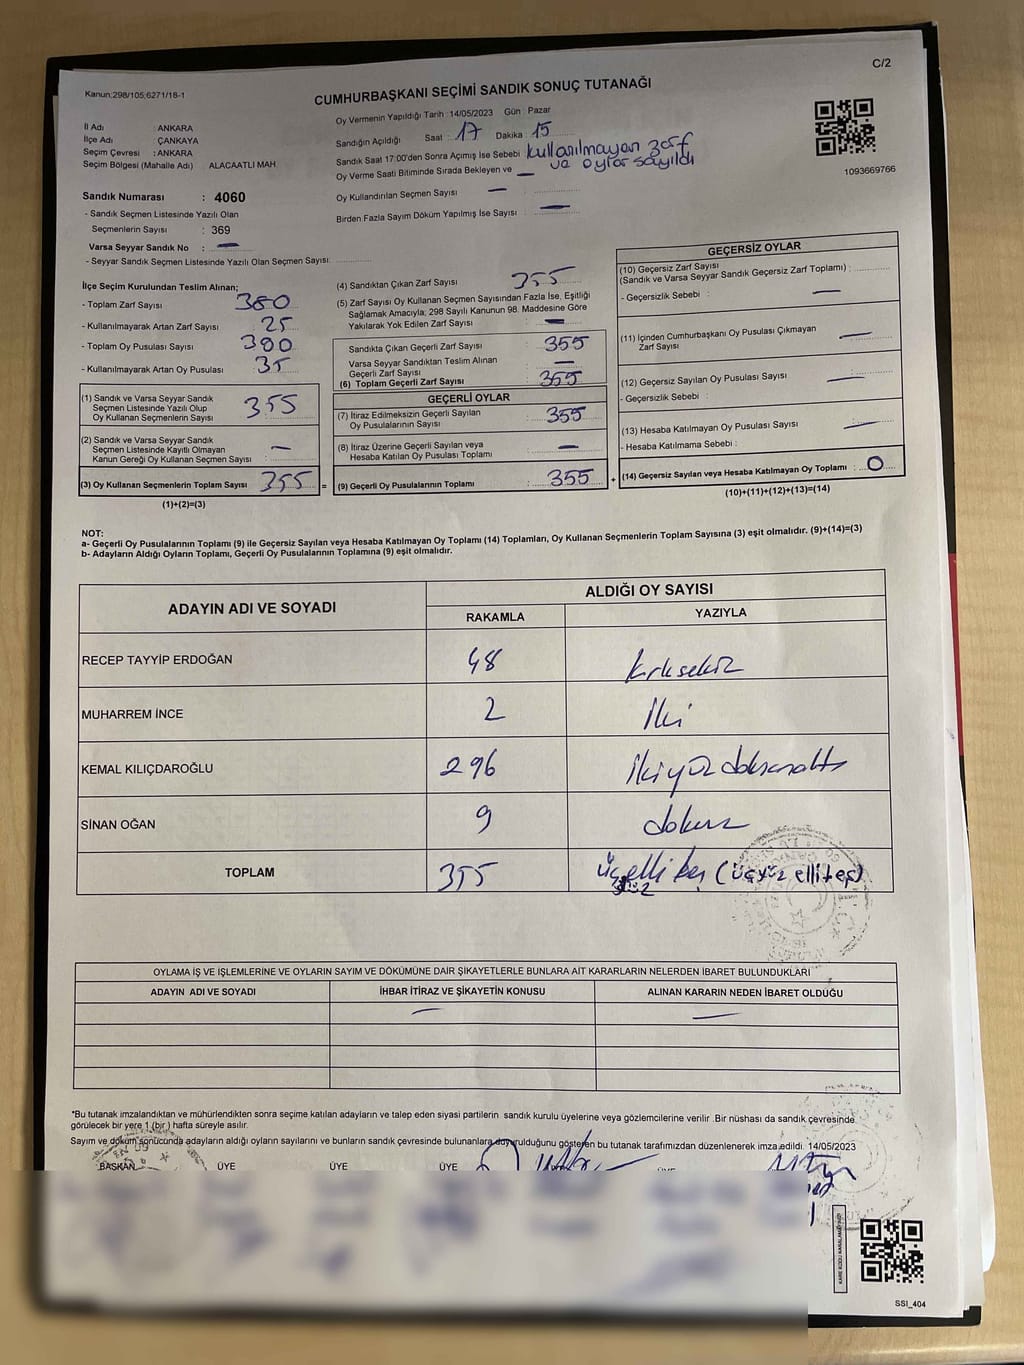 C/2
Kanun;298/105;6271/18-1
CUMHURBAŞKANI SEÇİMİ SANDIK SONUÇ TUTANAĞI
İl Adı : ANKARA
İlçe Adı : ÇANKAYA
Seçim Çevresi : ANKARA
Seçim Bölgesi (Mahalle Adı) ALACAATLI MAH.
Oy Vermenin Yapıldığı Tarih : 14/05/2023 Gün : Pazar
Sandığın Açıldığı Saat : 17 Dakika : 15
Sandık Saat 17:00'den Sonra Açımış İse Sebebi kullanılmayan zarf
ve oylar sayıldı
Oy Verme Saati Bitiminde Sırada Bekleyen ve —
Oy Kullandırılan Seçmen Sayısı —
Birden Fazla Sayım Döküm Yapılmış İse Sayısı : —
1093669766
Sandık Numarası : 4060
- Sandık Seçmen Listesinde Yazılı Olan
Seçmenlerin Sayısı : 369
Varsa Seyyar Sandık No : —
- Seyyar Sandık Seçmen Listesinde Yazılı Olan Seçmen Sayısı:
İlçe Seçim Kurulundan Teslim Alınan;
- Toplam Zarf Sayısı : 380
- Kullanılmayarak Artan Zarf Sayısı : 25
- Toplam Oy Pusulası Sayısı : 390
- Kullanılmayarak Artan Oy Pusulası : 35
(1) Sandık ve Varsa Seyyar Sandık
Seçmen Listesinde Yazılı Olup
Oy Kullanan Seçmenlerin Sayısı : 355
(2) Sandık ve Varsa Seyyar Sandık
Seçmen Listesinde Kayıtlı Olmayan
Kanun Gereği Oy Kullanan Seçmen Sayısı : —
(3) Oy Kullanan Seçmenlerin Toplam Sayısı : 355 =
(1)+(2)=(3)
(4) Sandıktan Çıkan Zarf Sayısı : 355
(5) Zarf Sayısı Oy Kullanan Seçmen Sayısından Fazla İse, Eşitliği
Sağlamak Amacıyla; 298 Sayılı Kanunun 98. Maddesine Göre
Yakılarak Yok Edilen Zarf Sayısı : —
Sandıkta Çıkan Geçerli Zarf Sayısı : 355
Varsa Seyyar Sandıktan Teslim Alınan
Geçerli Zarf Sayısı : —
(6) Toplam Geçerli Zarf Sayısı : 355
GEÇERLİ OYLAR
(7) İtiraz Edilmeksizin Geçerli Sayılan
Oy Pusulalarının Sayısı : 355
(8) İtiraz Üzerine Geçerli Sayılan veya
Hesaba Katılan Oy Pusulası Toplamı : —
(9) Geçerli Oy Pusulalarının Toplamı : 355 +
GEÇERSİZ OYLAR
(10) Geçersiz Zarf Sayısı
(Sandık ve Varsa Seyyar Sandık Geçersiz Zarf Toplamı) :
- Geçersizlik Sebebi : —
(11) İçinden Cumhurbaşkanı Oy Pusulası Çıkmayan
Zarf Sayısı : —
(12) Geçersiz Sayılan Oy Pusulası Sayısı : —
- Geçersizlik Sebebi :
(13) Hesaba Katılmayan Oy Pusulası Sayısı : —
- Hesaba Katılmama Sebebi :
(14) Geçersiz Sayılan veya Hesaba Katılmayan Oy Toplamı : 0
(10)+(11)+(12)+(13)=(14)
NOT:
a- Geçerli Oy Pusulalarının Toplamı (9) ile Geçersiz Sayılan veya Hesaba Katılmayan Oy Toplamı (14) Toplamları, Oy Kullanan Seçmenlerin Toplam Sayısına (3) eşit olmalıdır. (9)+(14)=(3)
b- Adayların Aldığı Oyların Toplamı, Geçerli Oy Pusulalarının Toplamına (9) eşit olmalıdır.
ADAYIN ADI VE SOYADI ALDIĞI OY SAYISI
RAKAMLA YAZIYLA
RECEP TAYYİP ERDOĞAN 48 kırksekiz
MUHARREM İNCE 2 İki
KEMAL KILIÇDAROĞLU 296 ikiyüzdoksanaltı
SİNAN OĞAN 9 dokuz
TOPLAM 355 üçellibeş (üçyüz ellibeş)
yüz
OYLAMA İŞ VE İŞLEMLERİNE VE OYLARIN SAYIM VE DÖKÜMÜNE DAİR ŞİKAYETLERLE BUNLARA AİT KARARLARIN NELERDEN İBARET BULUNDUKLARI
ADAYIN ADI VE SOYADI İHBAR İTİRAZ VE ŞİKAYETİN KONUSU ALINAN KARARIN NEDEN İBARET OLDUĞU
— —
*Bu tutanak imzalandıktan ve mühürlendikten sonra seçime katılan adayların ve talep eden siyasi partilerin sandık kurulu üyelerine veya gözlemcilerine verilir .Bir nüshası da sandık çevresinde
görülecek bir yere 1 (bir ) hafta süreyle asılır.
Sayım ve döküm sonucunda adayların aldığı oyların sayılarını ve bunların sandık çevresinde bulunanlara duyurulduğunu gösteren bu tutanak tarafımızdan düzenlenerek imza edildi. 14/05/2023
BAŞKAN ÜYE ÜYE ÜYE
SSI_404